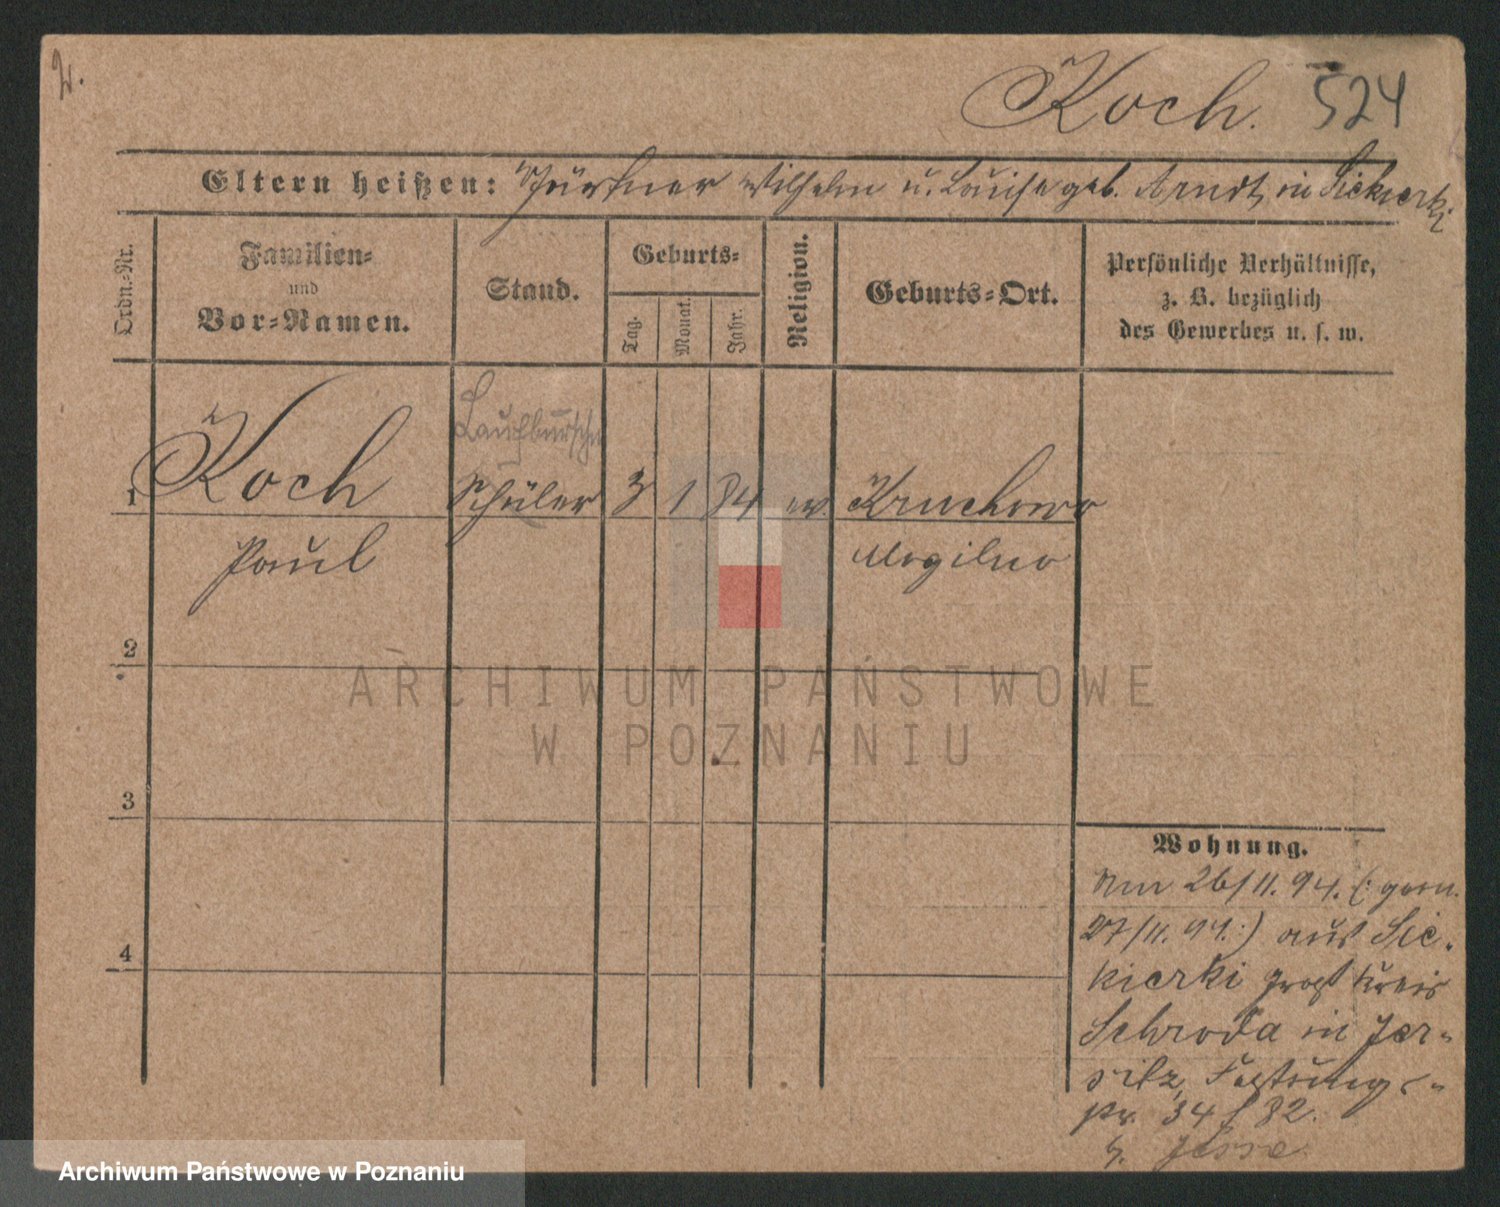 Koch. 524
Eltern heißen: Wilhelm u. Louise geb. Arndt, in Siekierki
Ordn.-Nr.
Familien-
und
Vor-Namen.
Stand.
Geburts-
Tag.
Monat.
Jahr.
Religion.
Geburts-Ort.
Persönliche Verhältnisse,
z. B. bezüglich
des Gewerbes u. s. w.
Laufbursche
1 Koch Schüler 3 1 84 ev. Kruchowo
Paul Mogilno
2
3
4
Wohnung.
Am 26/11. 94. (: gem.
27/11. 94. :) aus Sie-
kierki Kreis
Schroda in Jer-
sitz, Festungs-
34
ARCHIWUM PAŃSTWOWE
W POZNANIU
Archiwum Państwowe w Poznaniu